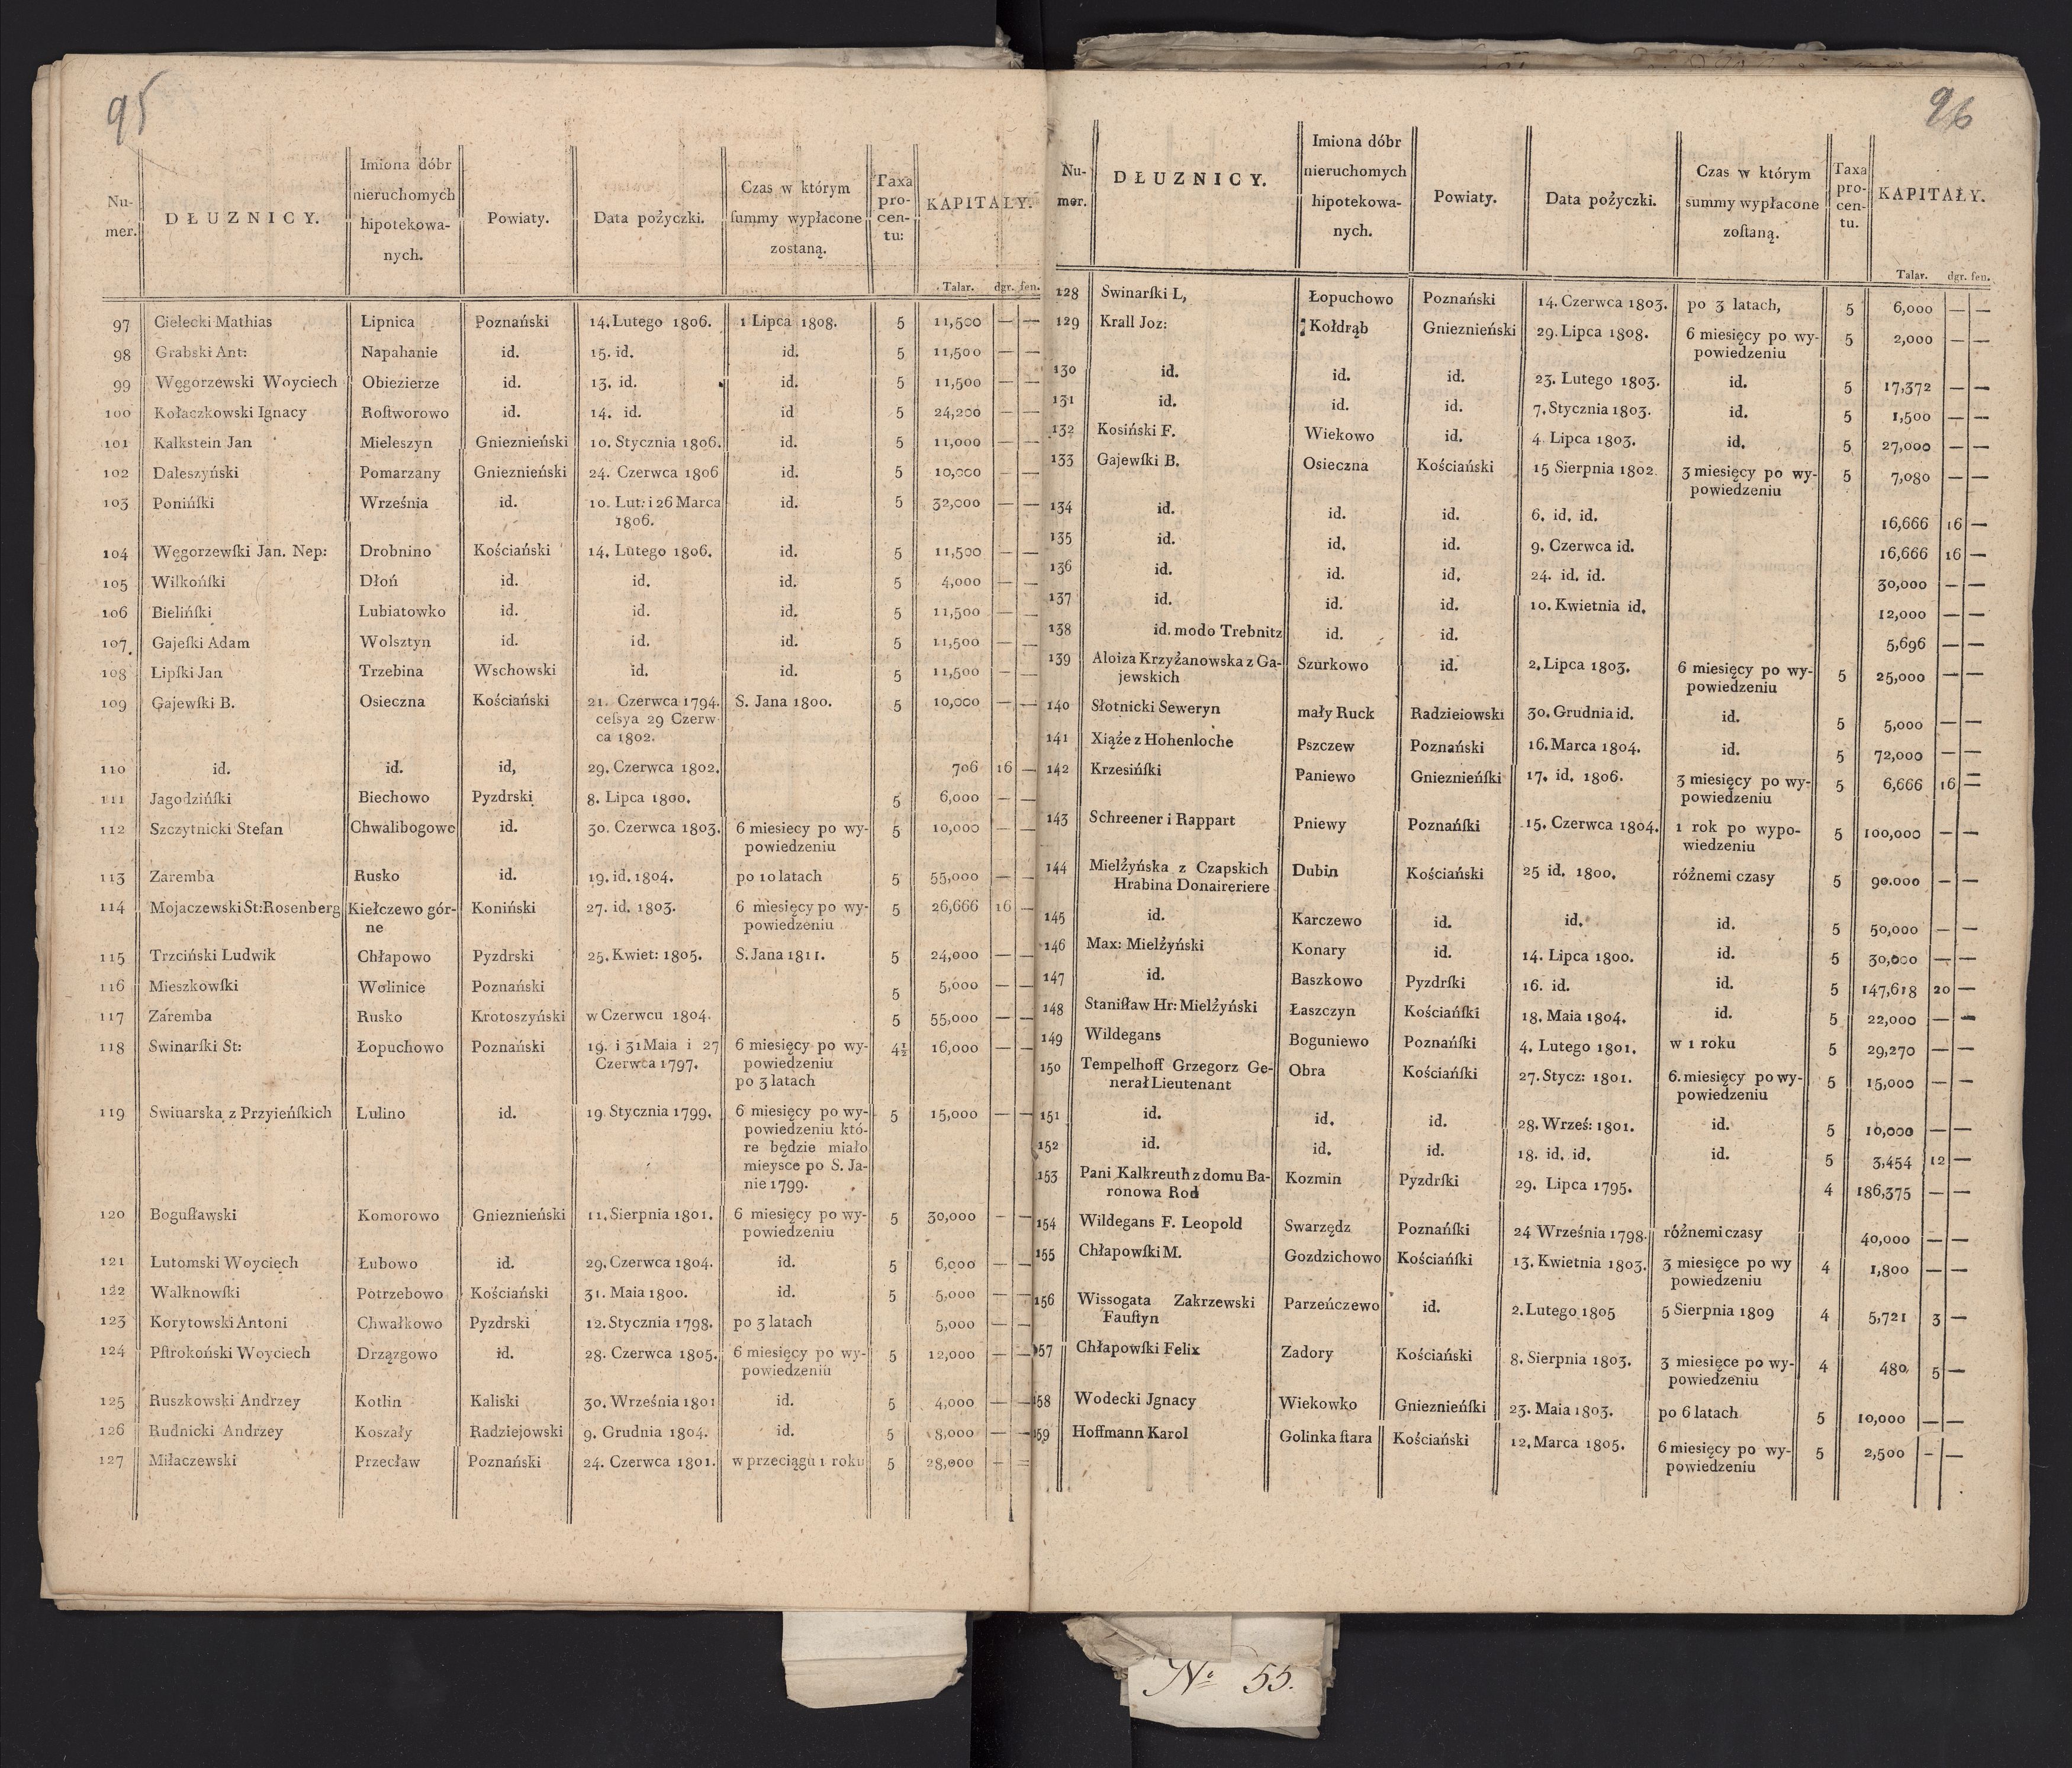 95
Nu-
mer.
DŁUZNICY.
Imiona dóbr
nieruchomych
hipotekowa-
nych.
Powiaty.
Data pożyczki.
Czas w którym
ſummy wypłacone
zostaną.
Taxa
pro-
cen-
tu:
KAPITALY.
Talar. dgr. fen.
97 Cielecki Mathias Lipnica Poznański 14. Lutego 1806. 1 Lipca 1808. 5 11,500 — —
98 Grabski Ant: Napahanie id. 15. id. id. 5 11,500 — —
99 Węgorzewski Woyciech Obiezierze id. 13. id. id. 5 11,500 — —
100 Kołaczkowski Ignacy Roſtworowo id. 14. id. id 5 24,200 — —
101 Kalkstein Jan Mieleszyn Gnieznieński 10. Stycznia 1806. id. 5 11,000 — —
102 Daleszyński Pomarzany Gnieznieński 24. Czerwca 1806 id. 5 10,000 — —
103 Ponińſki Września id. 10. Lut: i 26 Marca id. 5 32,000 — —
1806.
104 Węgorzewſki Jan. Nep: Drobnino Kościański 14. Lutego 1806. id. 5 11,500 — —
105 Wilkońſki Dłoń id. id. id. 5 4,000 — —
106 Bielińſki Lubiatowko id. id. id. 5 11,500 — —
107. Gajeſki Adam Wolsztyn id. id. id. 5 11,500 — —
108 Lipſki Jan Trzebina Wschowski id. id. 5 11,500 — —
109 Gajewſki B. Osieczna Kościański 21. Czerwca 1794. S. Jana 1800. 5 10,000 — —
ceſsya 29 Czerw-
ca 1802.
110 id. id. id, 29. Czerwca 1802. 706 16 —
111 Jagodzińſki Biechowo Pyzdrski 8. Lipca 1800. 5 6,000 — —
112 Szczytnicki Stefan Chwalibogowo id. 30. Czerwca 1803. 6 miesiecy po wy- 5 10,000 — —
powiedzeniu
113 Zaremba Rusko id. 19. id. 1804. po 10 latach 5 55,000 — —
114 Mojaczewski St: Rosenberg Kiełczewo gór- Koniński 27. id. 1803. 6 miesięcy po wy- 5 26,666 16 —
ne powiedzeniu
115 Trzciński Ludwik Chłapowo Pyzdrski 25. Kwiet: 1805. S. Jana 1811. 5 24,000 — —
116 Mieszkowſki Wolinice Poznański 5 5,000 — —
117 Zaremba Rusko Krotoszyński w Czerwcu 1804. 5 55,000 — —
118 Swinarſki St: Łopuchowo Poznański 19. i 31 Maia i 27 6 miesięcy po wy- 4½ 16,000 — —
Czerwca 1797. powiedzeniu
po 3 latach
119 Swinarska z Przyieńſkich Lulino id. 19 Stycznia 1799. 6 miesięcy po wy- 5 15,000 — —
powiedzeniu któ-
re będzie miało
mieysce po S. Ja-
nie 1799.
120 Boguſławski Komorowo Gnieznieński 11. Sierpnia 1801. 6 miesięcy po wy- 5 30,000 — —
powiedzeniu
121 Lutomski Woyciech Łubowo id. 29. Czerwca 1804. id. 5 6,000 — —
122 Walknowſki Potrzebowo Kościański 31. Maia 1800. id. 5 5,000 — —
123 Korytowski Antoni Chwałkowo Pyzdrski 12. Stycznia 1798. po 3 latach 5,000 — —
124 Pſtrokoński Woyciech Drzązgowo id. 28. Czerwca 1805. 6 miesięcy po wy- 5 12,000 — —
powiedzeniu
125 Ruszkowski Andrzey Kotlin Kaliski 30. Września 1801 id. 5 4,000 — —
126 Rudnicki Andrzey Koszały Radziejowski 9. Grudnia 1804. id. 5 8,000 — —
127 Miłaczewski Przecław Poznański 24. Czerwca 1801. w przeciągu 1 roku 5 28,000 — =
96
Nu-
mer.
DŁUZNICY.
Imiona dóbr
nieruchomych
hipotekowa-
nych.
Powiaty.
Data pożyczki.
Czas w którym
summy wypłacone
zoſtaną.
Taxa
pro-
cen-
tu.
KAPITAŁY.
Talar. dgr. fen.
128 Swinarſki L, Łopuchowo Poznański 14. Czerwca 1803. po 3 latach, 5 6,000 — —
129 Krall Joz: Kołdrąb Gnieznieński 29. Lipca 1808. 6 miesięcy po wy- 5 2,000 — —
powiedzeniu
130 id. id. id. 23. Lutego 1803. id. 5 17,372 — —
131 id. id. id. 7. Stycznia 1803. id. 5 1,500 — —
132 Kosiński F. Wiekowo id. 4. Lipca 1803. id. 5 27,000 — —
133 Gajewſki B. Osieczna Kościański 15 Sierpnia 1802. 3 miesięcy po wy- 5 7,080 — —
powiedzeniu
134 id. id. id. 6. id. id. 16,666 16 —
135 id. id. id. 9. Czerwca id. 16,666 16 —
136 id. id. id. 24. id. id. 30,000 — —
137 id. id. id. 10. Kwietnia id. 12,000 — —
138 id. modo Trebnitz id. id. 5,696 — —
139 Aloiza Krzyżanowska z Ga- Szurkowo id. 2. Lipca 1803. 6 miesięcy po wy- 5 25,000 — —
jewskich powiedzeniu
140 Słotnicki Seweryn mały Ruck Radzieiowski 30. Grudnia id. id. 5 5,000 — —
141 Xiąże z Hohenloche Pszczew Poznański 16. Marca 1804. id. 5 72,000 — —
142 Krzesińſki Paniewo Gnieznieńſki 17. id. 1806. 3 miesięcy po wy- 5 6,666 16 —
powiedzeniu
143 Schreener i Rappart Pniewy Poznańſki 15. Czerwca 1804. 1 rok po wypo- 5 100,000 — —
wiedzeniu
144 Mielżyńska z Czapskich Dubin Kościański 25 id. 1800. różnemi czasy 5 90.000 — —
Hrabina Donaireriere
145 id. Karczewo id. id. id. 5 50,000 — —
146 Max: Mielżyński Konary id. 14. Lipca 1800. id. 5 30,000 — —
147 id. Baszkowo Pyzdrſki 16. id. id. 5 147,618 20 —
148 Stanisław Hr: Mielżyński Łaszczyn Kościańſki 18. Maia 1804. id. 5 22,000 — —
149 Wildegans Boguniewo Poznańſki 4. Lutego 1801. w 1 roku 5 29,270 — —
150 Tempelhoff Grzegorz Ge- Obra Kościańſki 27. Stycz: 1801. 6. miesięcy po wy- 5 15,000 — —
nerał Lieutenant powiedzeniu
151 id. id. id. 28. Wrześ: 1801. id. 5 10,000 — —
152 id. id. id. 18. id. id. id. 5 3,454 12 —
153 Pani Kalkreuth z domu Ba- Kozmin Pyzdrſki 29. Lipca 1795. 4 186,375 — —
ronowa Rod
154 Wildegans F. Leopold Swarzędz Poznańſki 24 Września 1798. różnemi czasy 40,000 — —
155 Chłapowſki M. Gozdzichowo Kościańſki 13. Kwietnia 1803. 3 miesięce po wy 4 1,800 — —
powiedzeniu
156 Wissogata Zakrzewski Parzeńczewo id. 2. Lutego 1805 5 Sierpnia 1809 4 5,721 3 —
Fauſtyn
157 Chłapowſki Felix Zadory Kościański 8. Sierpnia 1803. 3 miesięce po wy- 4 480 5 —
powiedzeniu
158 Wodecki Jgnacy Wiekowko Gnieznieńſki 23. Maia 1803. po 6 latach 5 10,000 — —
159 Hoffmann Karol Golinka ſtara Kościański 12. Marca 1805. 6 miesięcy po wy- 5 2,500 — —
powiedzeniu
No 55.